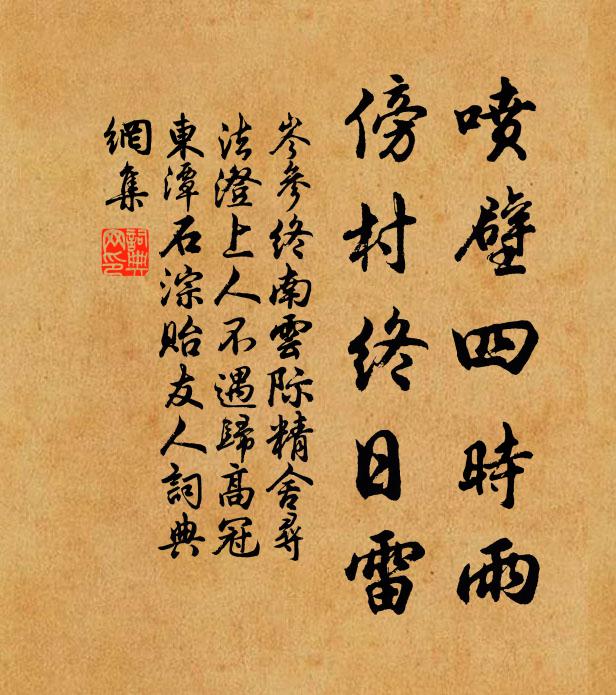 噴壁四時雨
傍村終日雷
岑參終南雲際精舍尋
法澄上人不遇歸高冠
東潭石淙貽友人詞典
網集
詞典
网印